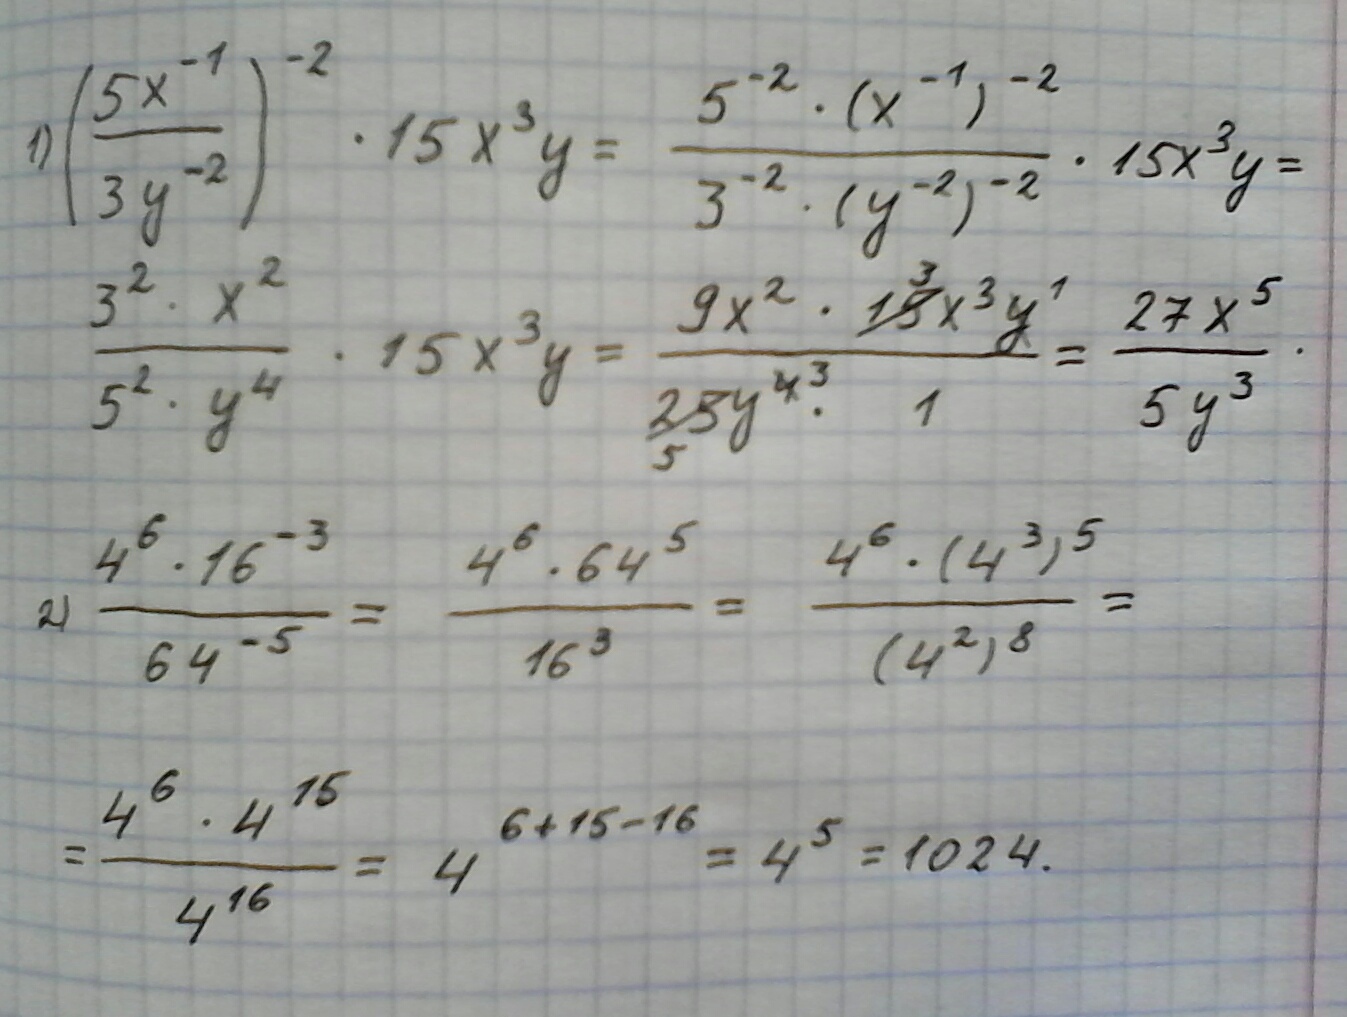 1) (5x⁻¹ / 3y⁻²)⁻² · 15x³y = (5⁻² · (x⁻¹)⁻²) / (3⁻² · (y⁻²)⁻²) · 15x³y =
(3² · x²) / (5² · y⁴) · 15x³y = (9x² · 15 3 x³y¹) / (25 5 y⁴ ³ · 1) = 27x⁵ / 5y³ .
2) (4⁶ · 16⁻³) / 64⁻⁵ = (4⁶ · 64⁵) / 16³ = (4⁶ · (4³)⁵) / (4²)⁸ =
= (4⁶ · 4¹⁵) / 4¹⁶ = 4⁶⁺¹⁵⁻¹⁶ = 4⁵ = 1024.